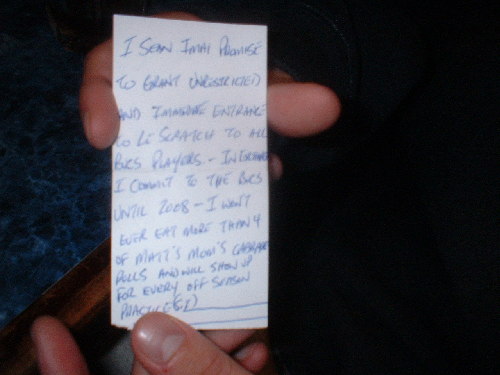 I SEAN IMAI PROMISE
TO GRANT UNRESTRICTED
AND IMMEDIATE ENTRANCE
TO LE SCRATCH TO ALL
BUCS PLAYERS - IN EXCHANGE
I COMMIT TO THE BUCS
UNTIL 2008 - I WON'T
EVER EAT MORE THAN 4
OF MATT'S MOM'S CABBAGE
ROLLS AND WILL SHOW UP
FOR EVERY OFF SEASON
PRACTICE